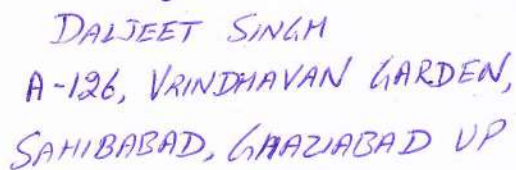 DALJEET SINGH
A-126, VRINDHAVAN GARDEN,
SAHIBABAD, GHAZIABAD UP